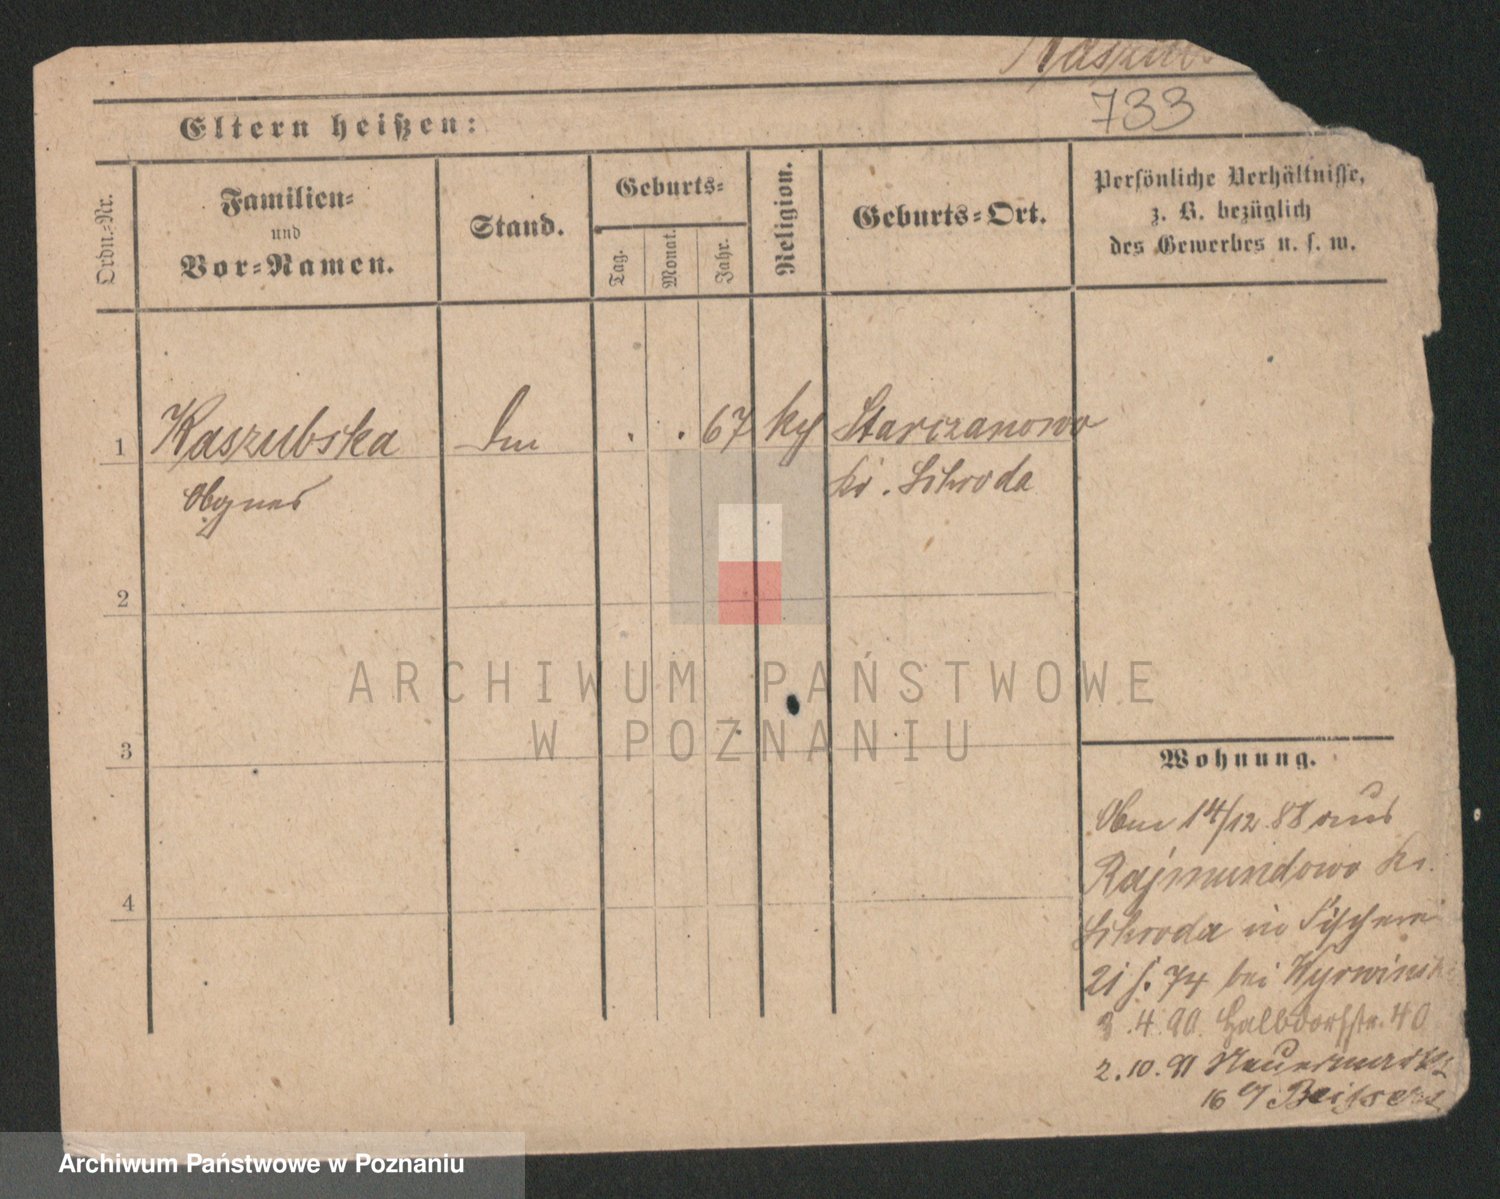 733
Eltern heißen:
Ordn.-Nr.
Familien-
und
Vor-Namen.
Stand.
Geburts-
Tag.
Monat.
Jahr.
Religion.
Geburts-Ort.
Persönliche Verhältnisse,
z. B. bezüglich
des Gewerbes u. s. w.
1 Kaszubska . . 67 Starczanowo
Agnes Kr. Schroda
2
3
4
ARCHIWUM PAŃSTWOWE
W POZNANIU
Wohnung.
14/12 88 aus
Rajmundowo Kr.
Schroda in Fischerei
21 74 bei
3.4.90. Halbdorfstr. 40
2.10.91
16
Archiwum Państwowe w Poznaniu